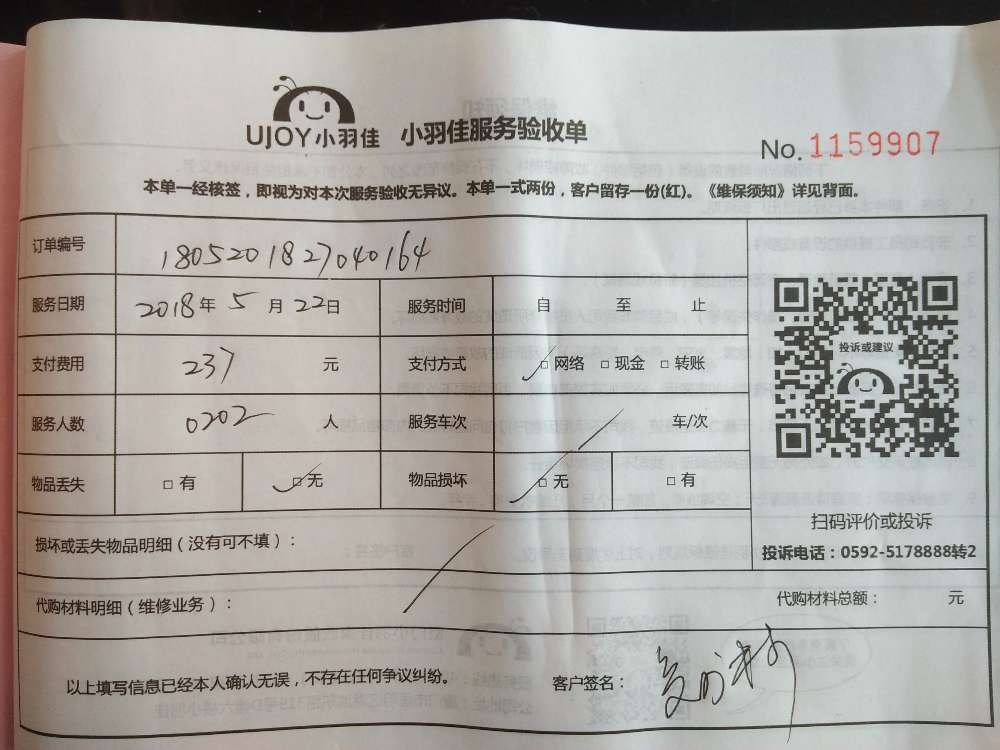 UJOY小羽佳 小羽佳服务验收单
No. 1159907
本单一经核签，即视为对本次服务验收无异议。本单一式两份，客户留存一份(红)。《维保须知》详见背面。
订单编号 1805201827040164
服务日期 2018年 5 月 22日 服务时间 自 至 止
支付费用 237 元 支付方式 □网络 □现金 □转账
投诉或建议
服务人数 0202 人 服务车次 车/次
物品丢失 □有 □无 物品损坏 □无 □有
扫码评价或投诉
损坏或丢失物品明细（没有可不填）：
投诉电话：0592-5178888转2
代购材料明细（维修业务）： 代购材料总额： 元
以上填写信息已经本人确认无误，不存在任何争议纠纷。 客户签名：